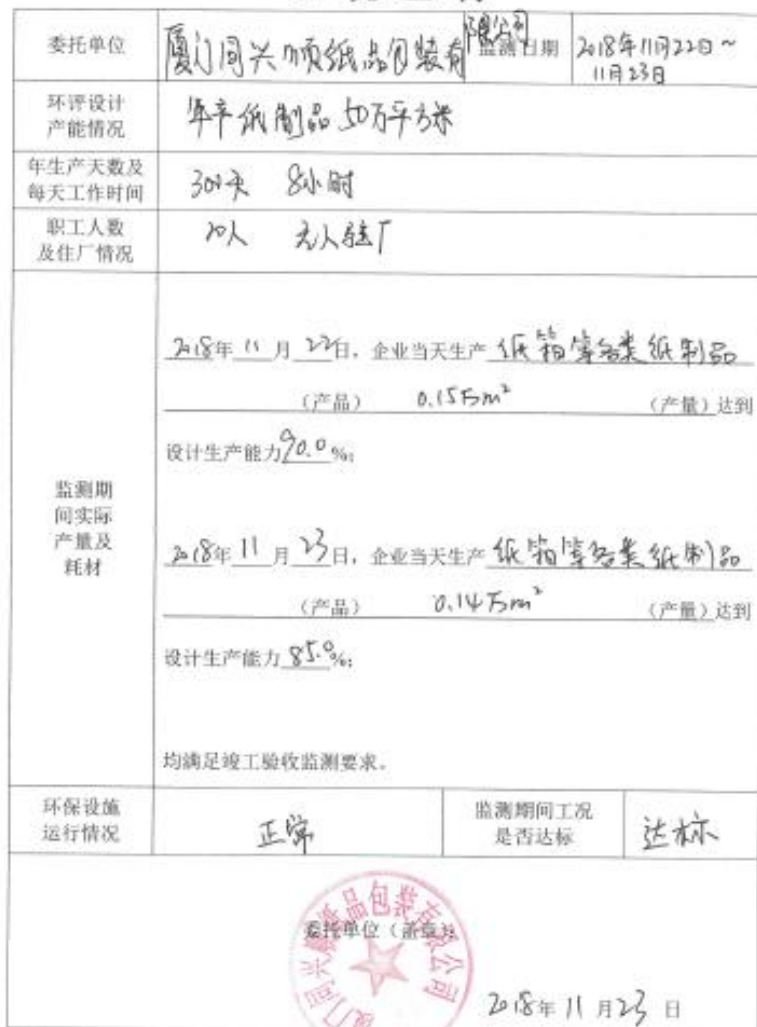 委托单位
厦门同兴顺纸品包装有限公司
监测日期
2018年11月22日~
11月23日
环评设计
产能情况
年产纸制品50万平方米
年生产天数及
每天工作时间
300天 8小时
职工人数
及住厂情况
20人 无人驻厂
监测期
间实际
产量及
耗材
2018年11月22日,企业当天生产纸箱等各类纸制品
(产品) 0.15万m² (产量)达到
设计生产能力90.0%;
2018年11月23日,企业当天生产纸箱等各类纸制品
(产品) 0.14万m² (产量)达到
设计生产能力85.0%;
均满足竣工验收监测要求。
环保设施
运行情况
正常
监测期间工况
是否达标
达标
委托单位(盖章):
厦门同兴顺纸品包装有限公司
2018年11月23日